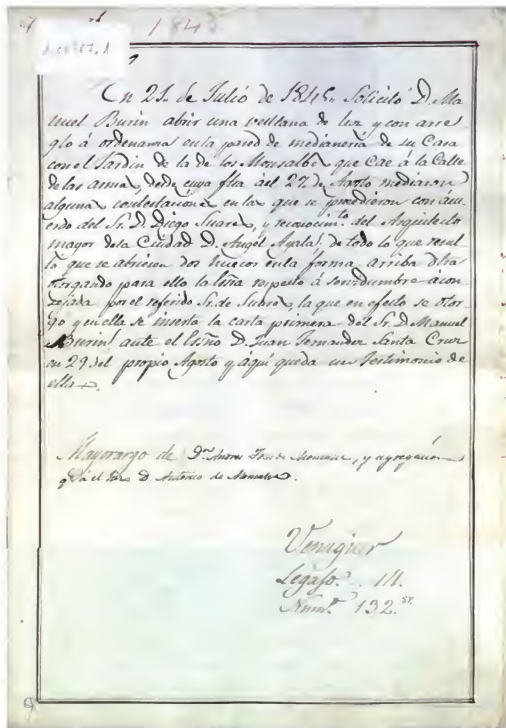 1845
En 21. de Julio de 1845. Solicitó D. Ma
nuel Burin abrir una ventana de luz y con arre
glo á ordenanza en la pared de medianería de su Casa
con el Jardin de la de los Monsalbes que Cae á la Calle
de las armas, desde cuya fha ál 27 de Agosto mediaron
alguna contestacione en la que se procedieron con acu
erdo del Sr. D. Diego Suarez, y reconocim.to del Arquitecto
mayor dela Ciudad D. Angel Ayala. de todo lo que resul
tó que se abriesen dos huecos en la forma arriba dha
otorgando para ello la respecto á servidumbre acon
sejada por el referido Sr. de la que en efecto se otor
gó y en ella se inserta la carta primera del Sr. D. Manuel
Burin ante el Esño D. Juan Fernandez Santa Cruz
en 29 del propio Agosto y aquí queda un Testimonio de
ella
Mayorazgo de D.n Andres de y agregacion
q.e á el hizo D. Antonio de
Legajo. 14.
Num.o 132.